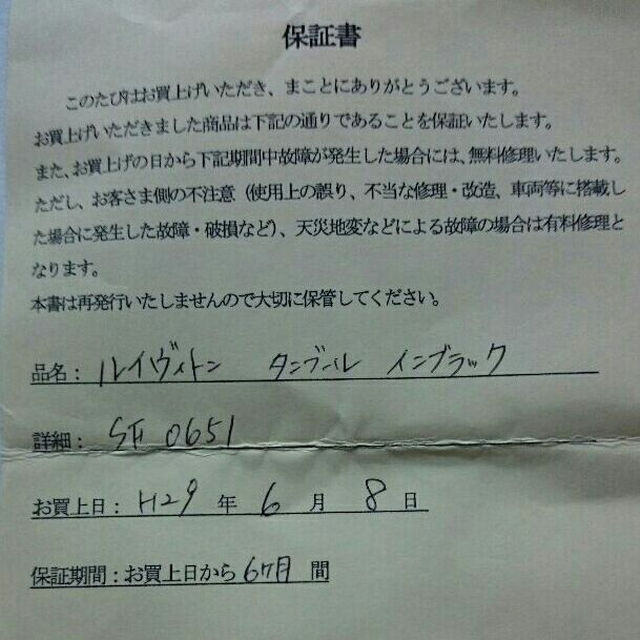 保証書
このたびはお買上げいただき、まことにありがとうございます。
お買上げいただきました商品は下記の通りであることを保証いたします。
また、お買上げの日から下記期間中故障が発生した場合には、無料修理いたします。
ただし、お客さま側の不注意（使用上の誤り、不当な修理・改造、車両等に搭載し
た場合に発生した故障・破損など）、天災地変などによる故障の場合は有料修理と
なります。
本書は再発行いたしませんので大切に保管してください。
品名：ルイヴィトン タンブール インブラック
詳細：SF 0651
お買上日：H29 年 6 月 8 日
保証期間：お買上日から 6ヶ月 間